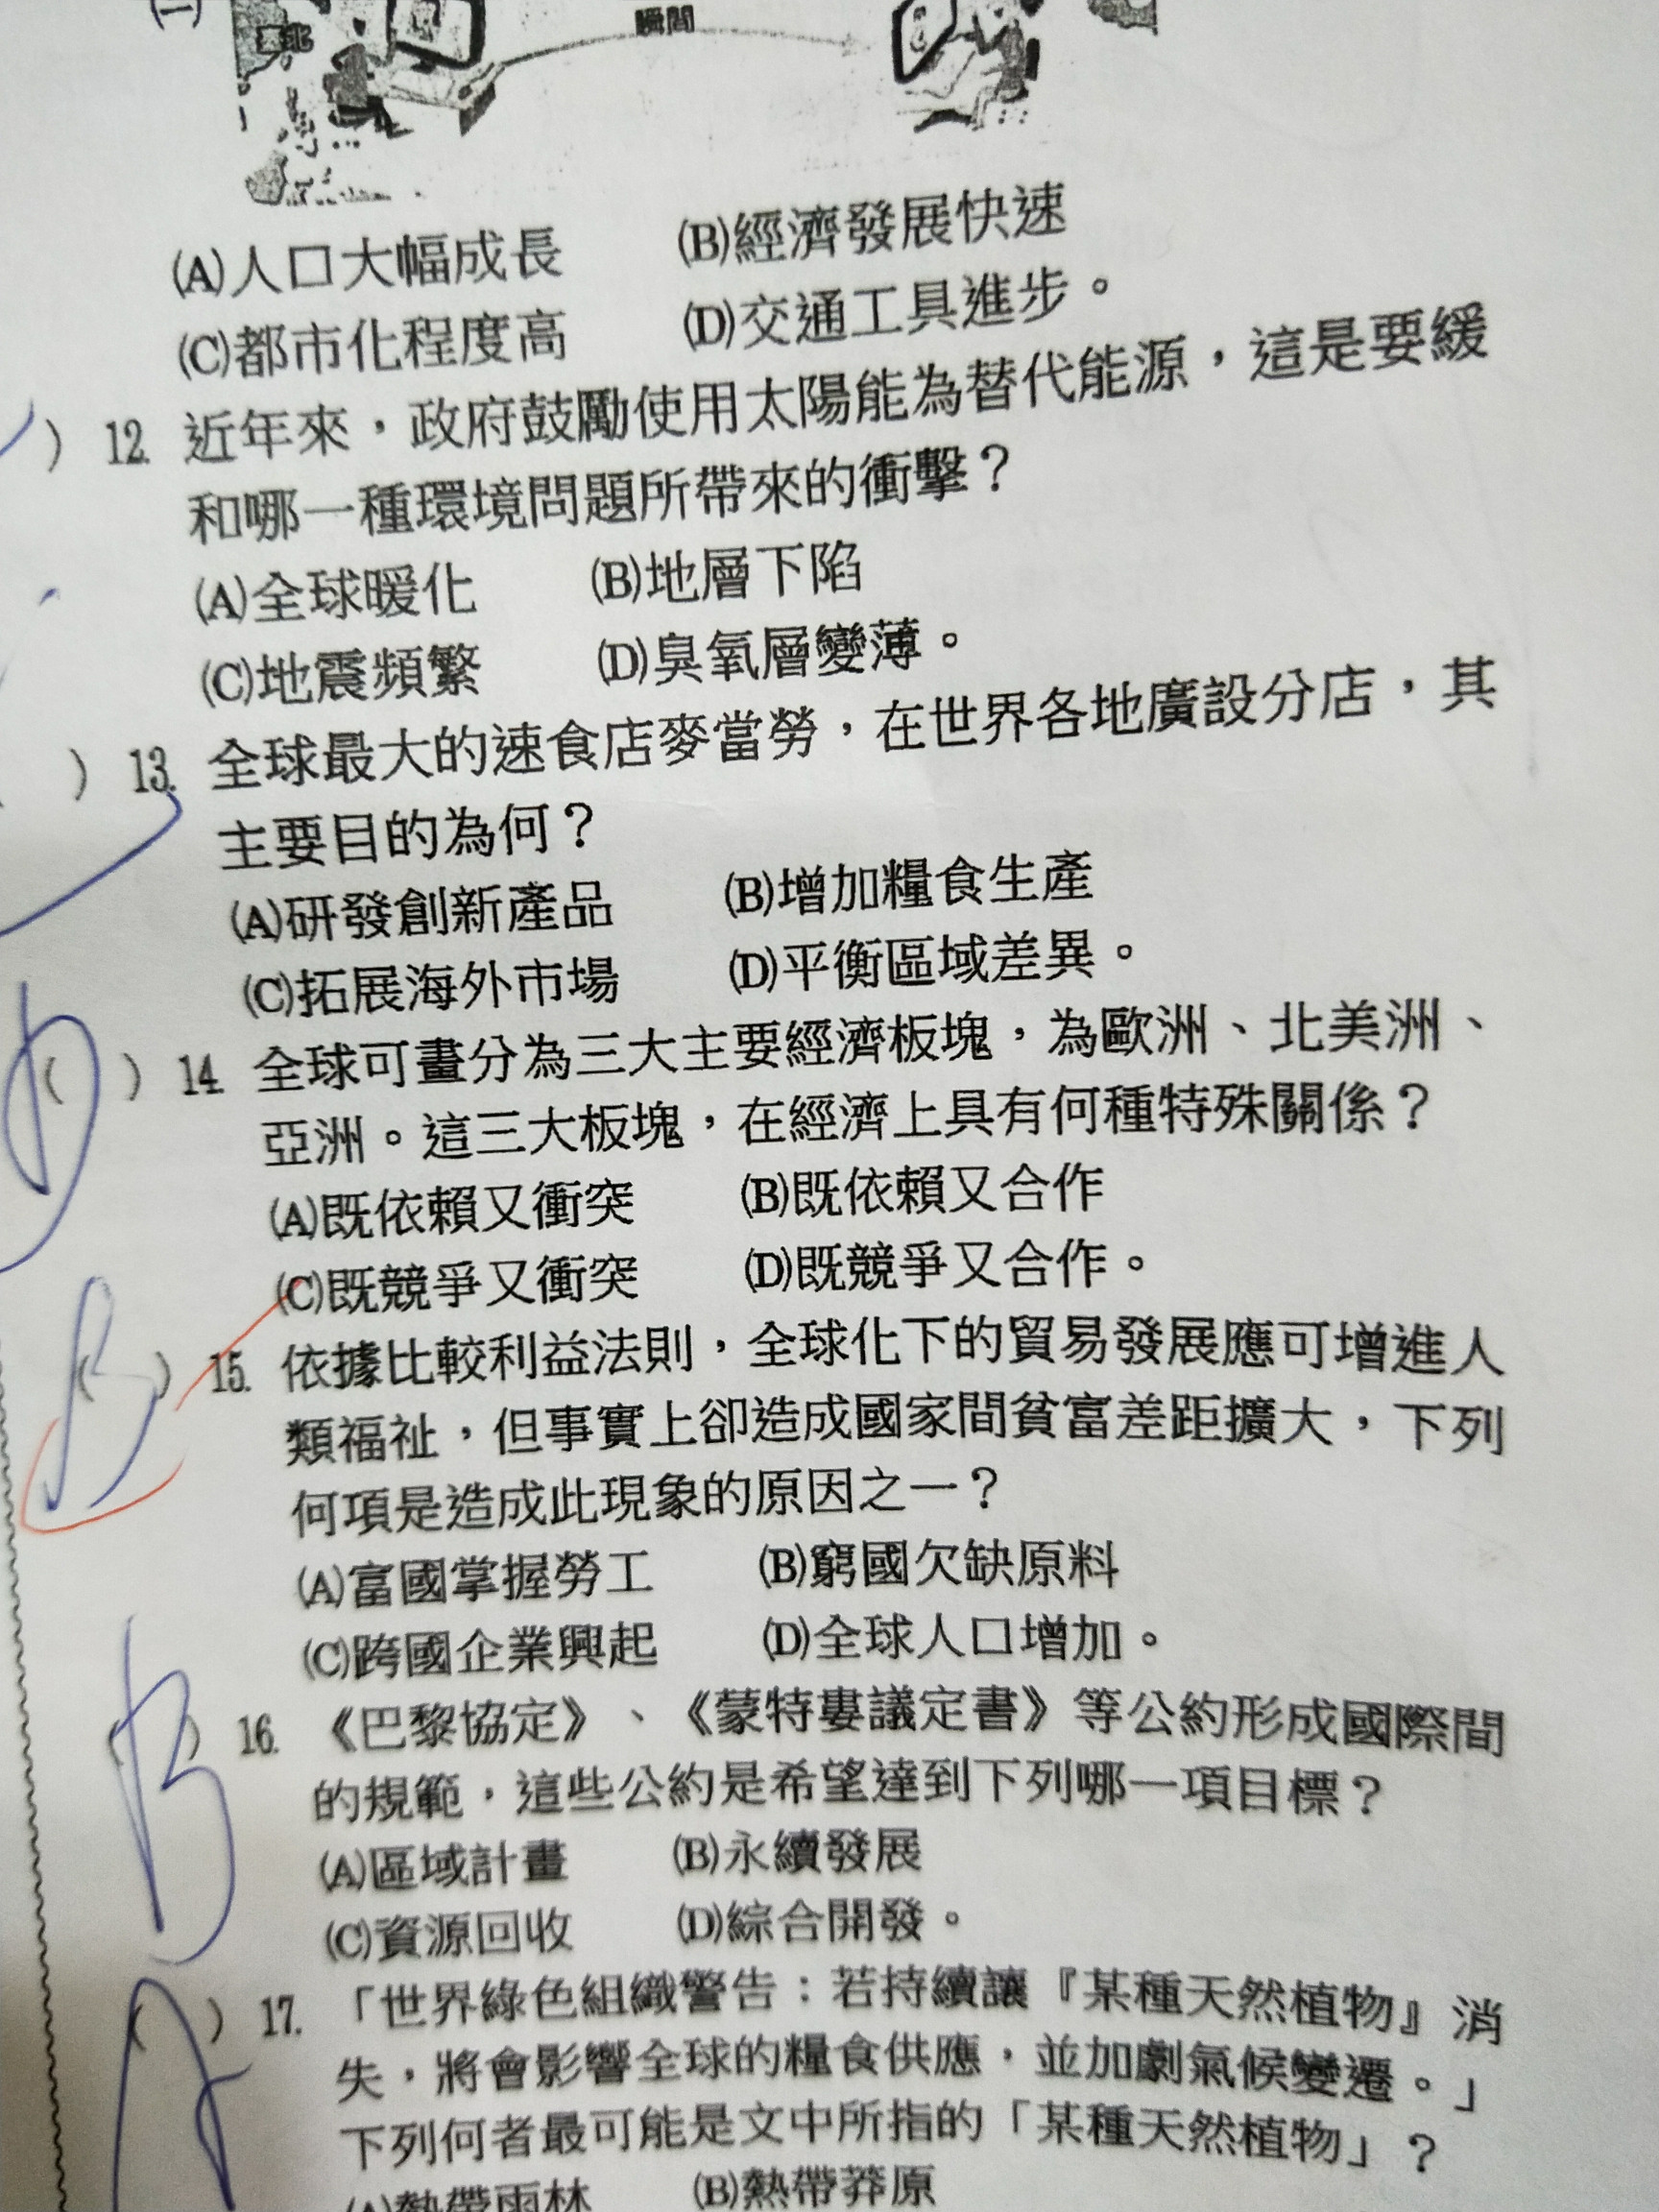 (一)
臺北
瞬間
(A)人口大幅成長 (B)經濟發展快速
(C)都市化程度高 (D)交通工具進步。
) 12. 近年來，政府鼓勵使用太陽能為替代能源，這是要緩
和哪一種環境問題所帶來的衝擊？
(A)全球暖化 (B)地層下陷
(C)地震頻繁 (D)臭氧層變薄。
) 13. 全球最大的速食店麥當勞，在世界各地廣設分店，其
主要目的為何？
(A)研發創新產品 (B)增加糧食生產
(C)拓展海外市場 (D)平衡區域差異。
(D) 14. 全球可畫分為三大主要經濟板塊，為歐洲、北美洲、
亞洲。這三大板塊，在經濟上具有何種特殊關係？
(A)既依賴又衝突 (B)既依賴又合作
(C)既競爭又衝突 (D)既競爭又合作。
(B) 15. 依據比較利益法則，全球化下的貿易發展應可增進人
類福祉，但事實上卻造成國家間貧富差距擴大，下列
何項是造成此現象的原因之一？
(A)富國掌握勞工 (B)窮國欠缺原料
(C)跨國企業興起 (D)全球人口增加。
(B) 16. 《巴黎協定》、《蒙特婁議定書》等公約形成國際間
的規範，這些公約是希望達到下列哪一項目標？
(A)區域計畫 (B)永續發展
(C)資源回收 (D)綜合開發。
(A) 17. 「世界綠色組織警告：若持續讓『某種天然植物』消
失，將會影響全球的糧食供應，並加劇氣候變遷。」
下列何者最可能是文中所指的「某種天然植物」？
(A)熱帶雨林 (B)熱帶莽原